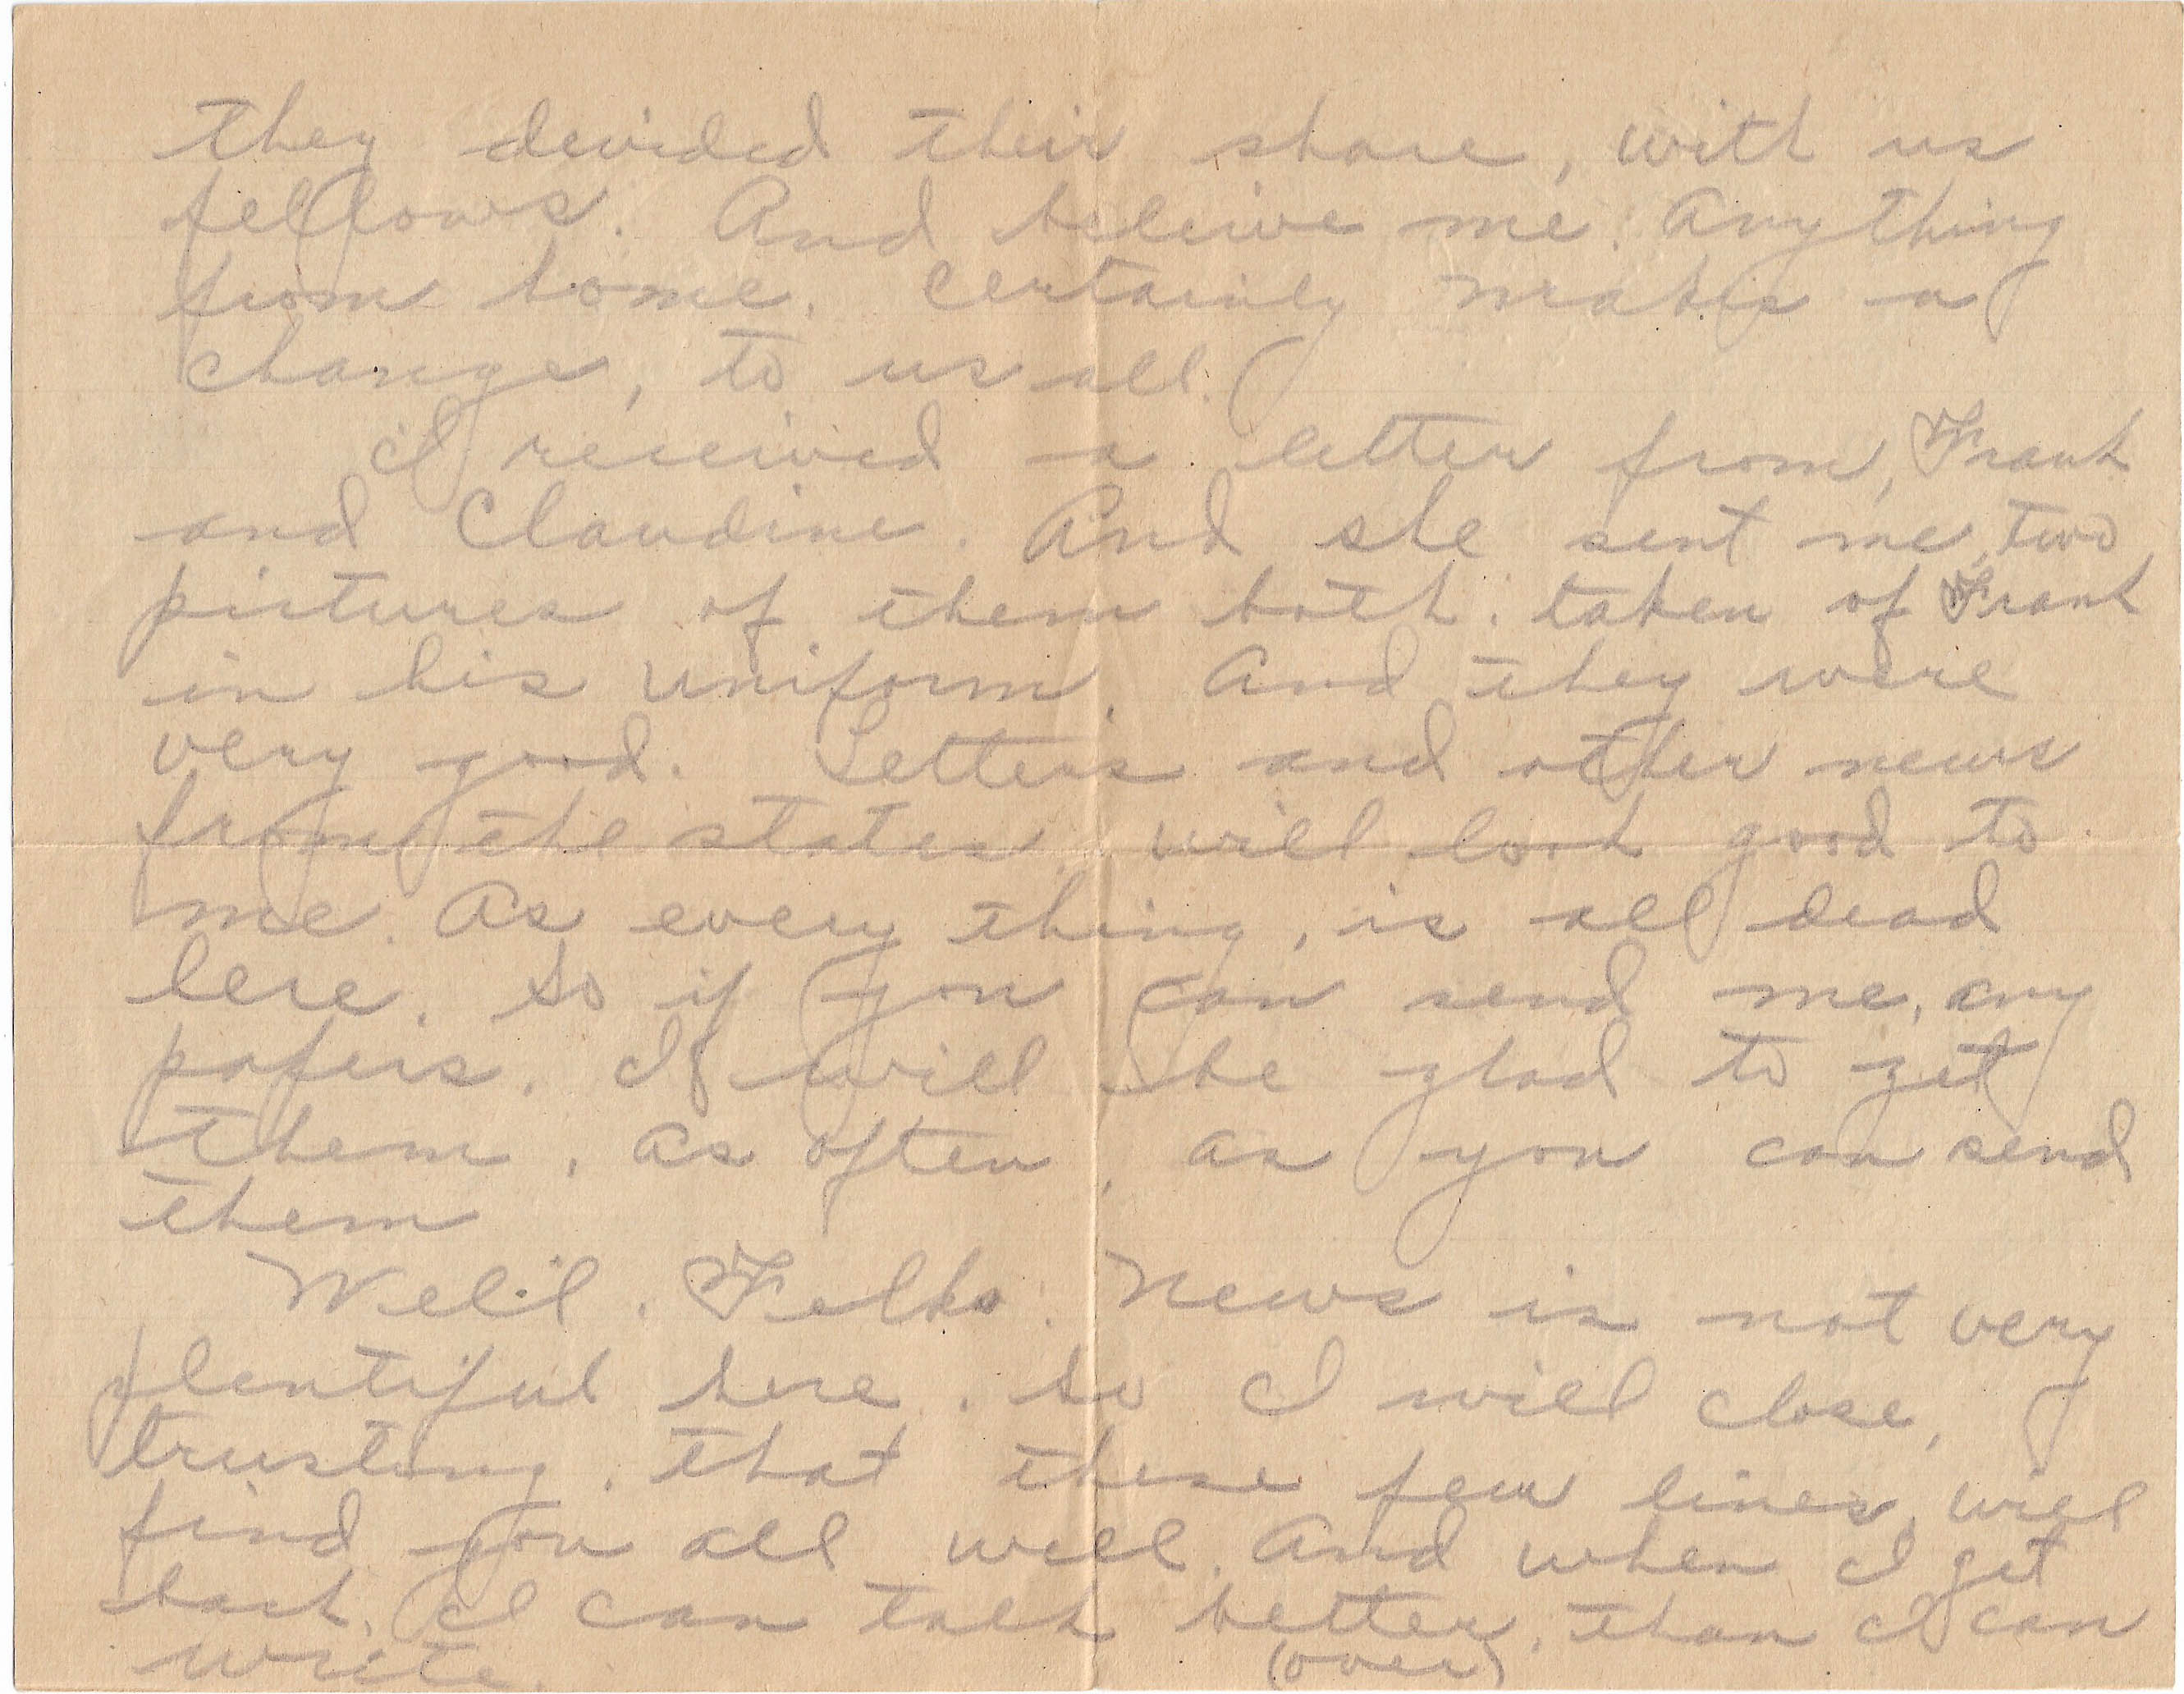 they devided their share, with us
fellows. And beleive me. Anything
from home. Certainly makes a
change, to us all.
I received a letter from, Frank
and Claudine. And she sent me, two
pictures of them both. taken of Frank
in his uniform. And they were
very good. Letters and other news
from the states, will look good to
me. As every thing, is all dead
here. So if you can send me, any
papers. I will be glad to get
them, as often, as you can send
them
Well. Folks. News is not very
plentiful here. So I will close,
trusting. that these few lines, will
find you all well. And when I get
back, I can talk better, than I can
write.
(over)